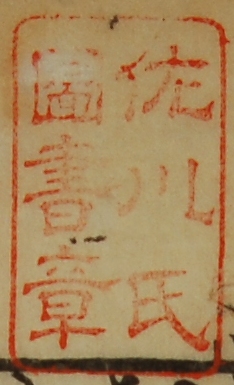 佐川氏
圖書章